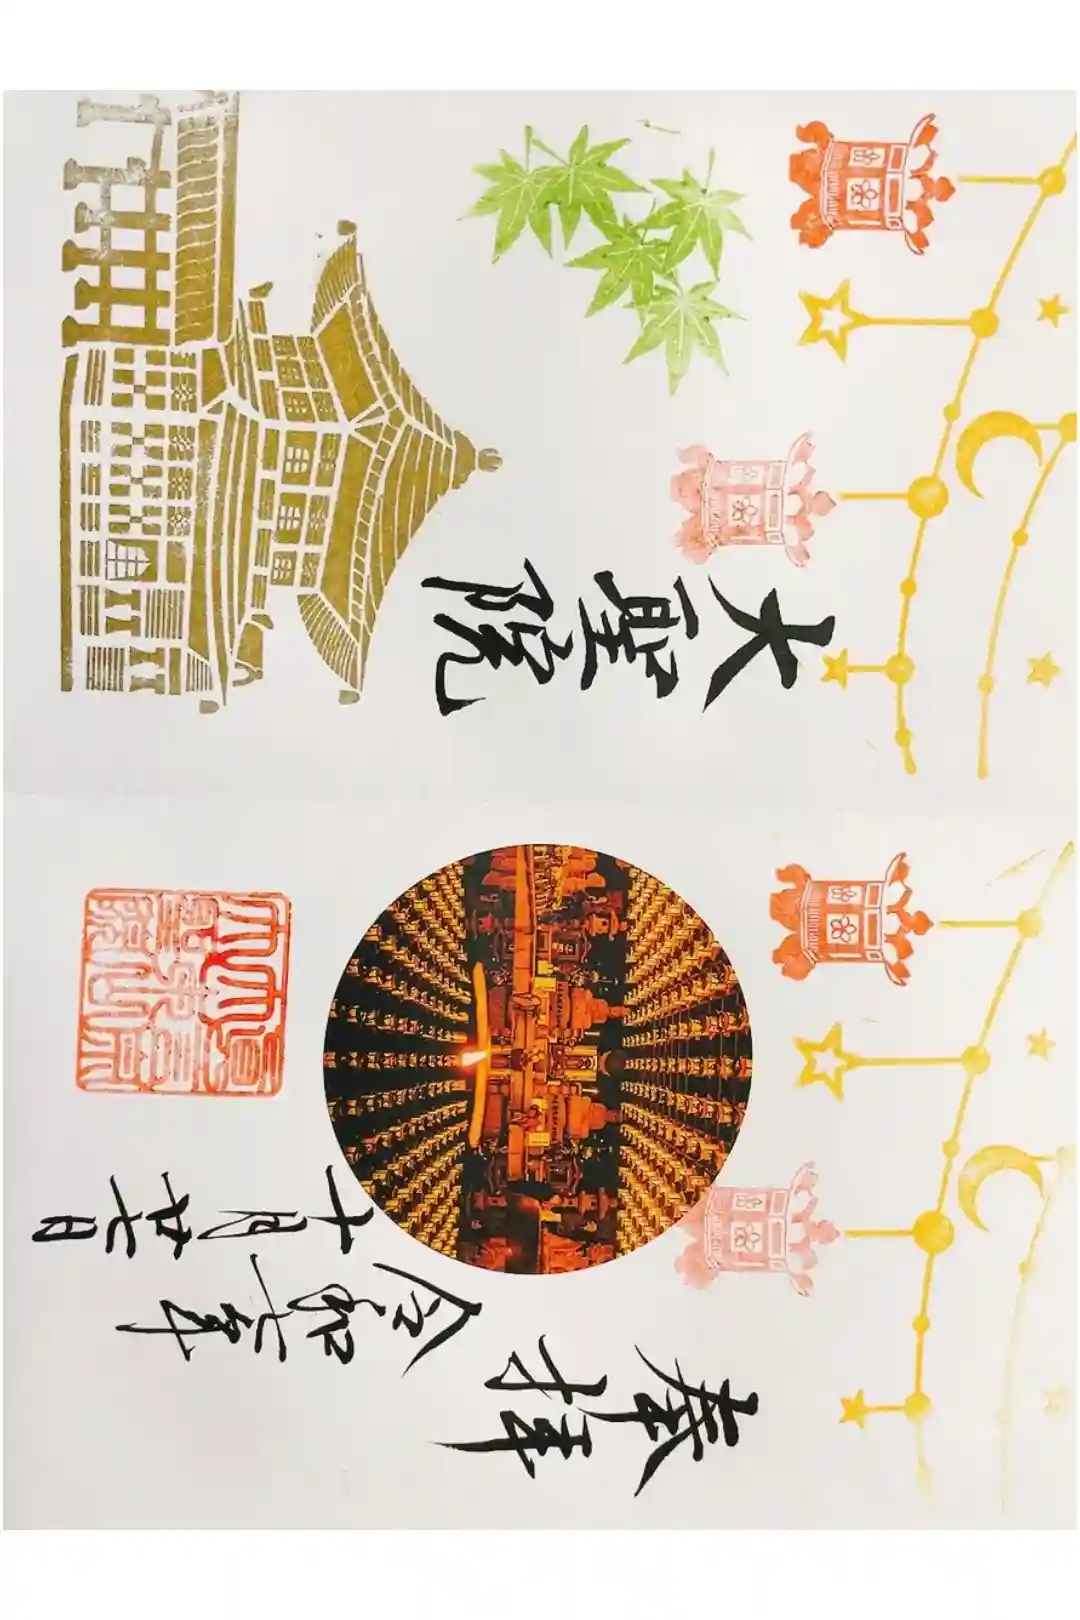 奉拝
令和六年
十月廿七日
大聖院